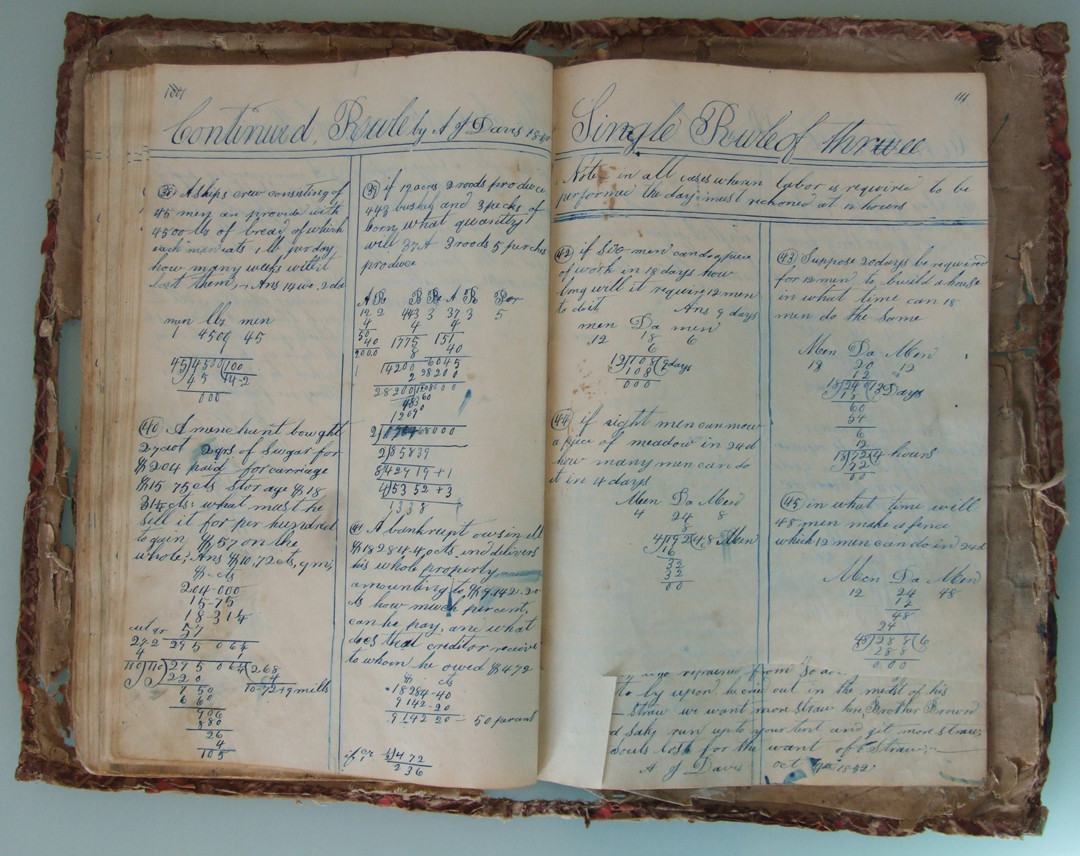 Continued Rule by A J Davis
38 A ships crew consisting of
45 men are provide with
4500 lbs of bread of which
each man eats 1 lb per day
how many weeks will it
last them, Ans 14 we 2 da
men lbs men
1 4500 45
45)4500(100
45 14-2
000
40 A merchant bought
27 cwt 2 qrs of Sugar for
$204 paid for carriage
$15 75 cts Storage $18
31¼ cts: what must he
sell it for per hundred
to gain $57 on the
whole? Ans $10,72 cts, 9 m,
$ cts
204-000
15-75
18 31¼
57
cwt qr
27-2 295 064
4
110)110)295 064(2.68
220 4
750 10-72+9 mills
660
906
880
26
4
105
39 if 12 acres 2 roods produce
443 bushes and 3 pecks of
Corn, what quantity
will 37 A 3 roods 5 perches
produce
A Ro B Pe A Ro Per
12 2 443 3 37 3 5
4 4 4
50 1775 151
40 8 40
2000 14200 6045
2|85839
8|42919+1
4|5352+3
1338
41 A bankrupt ows in all
$18284-40 cts, and delivers
his whole property
amounting to, $9,142-20
cts how much percent,
can he pay, and what
does that creditor receive
to whom he owed $472
$ cts
18284-40
9142-20
9142 20 50 percent
$472
236
111
Single Rule of threee
Note in all cases wheren labor is required to be
performe the day must reckoned at 12 hours
42 if six men can do a piece
of work in 18 days how
long will it require 12 men
to do it Ans 9 days
men Da men
12 18 6
6
12)108(9 days
108
000
44 if eight men can mow
a piece of meadow in 24 d
how many men can do
it in 4 days
Men Da Men
4 24 8
8
4)192(48 Men
16
32
32
00
43 Suppose 20 days be required
for 12 men to build a house
in what time can 18
men do the same
Men Da Men
18 20 12
12
18)240(13 Days
18
60
54
6
12
18)72(4 hours
72
00
45 in what time will
48 men make a fence
which 12 men can do in 24 d
Men Da Men
12 24 48
12
48
24
48)288(6
288
000
to ly upon, he cried out in the midst of his
straw we want more straw here, Brother Brown
run up to your tent and git more straw,
Souls lost for the want of Straw
A J Davis oct 1852